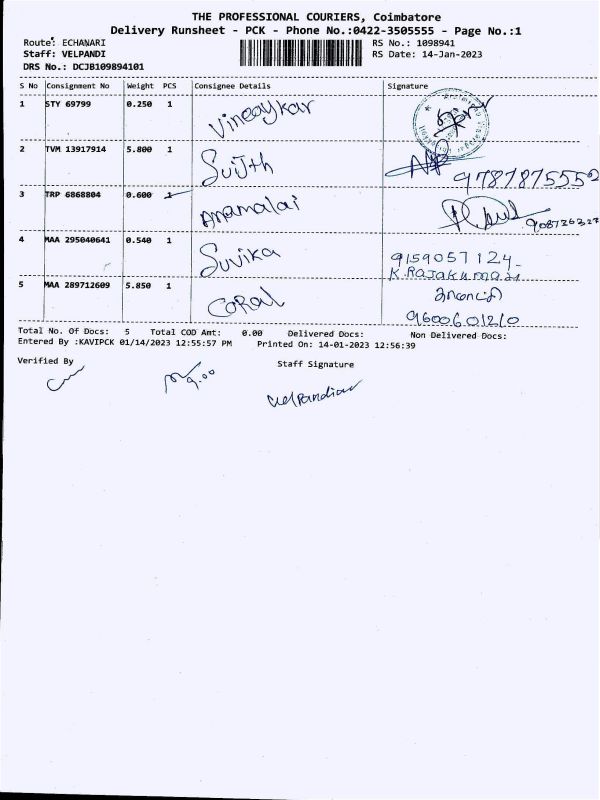 THE PROFESSIONAL COURIERS, Coimbatore
Delivery Runsheet - PCK - Phone No.:0422-3505555 - Page No.:1
Route: ECHANARI
RS No.: 1098941
Staff: VELPANDI
RS Date: 14-Jan-2023
DRS No.: DCJB109894101
S No Consignment No Weight PCS Consignee Details Signature
1 STY 69799 0.250 1
2 TVM 13917914 5.800 1 Sujith
9787875552
3 TRP 6868804 0.600 1 Anamalai
4 MAA 295040641 0.540 1 Suvika 9159057124
K.Rajakumari
5 MAA 289712609 5.850 1 CORAL
9600601210
Total No. Of Docs: 5 Total COD Amt: 0.00 Delivered Docs: Non Delivered Docs:
Entered By :KAVIPCK 01/14/2023 12:55:57 PM Printed On: 14-01-2023 12:56:39
Verified By Staff Signature
9.00
Velpandian